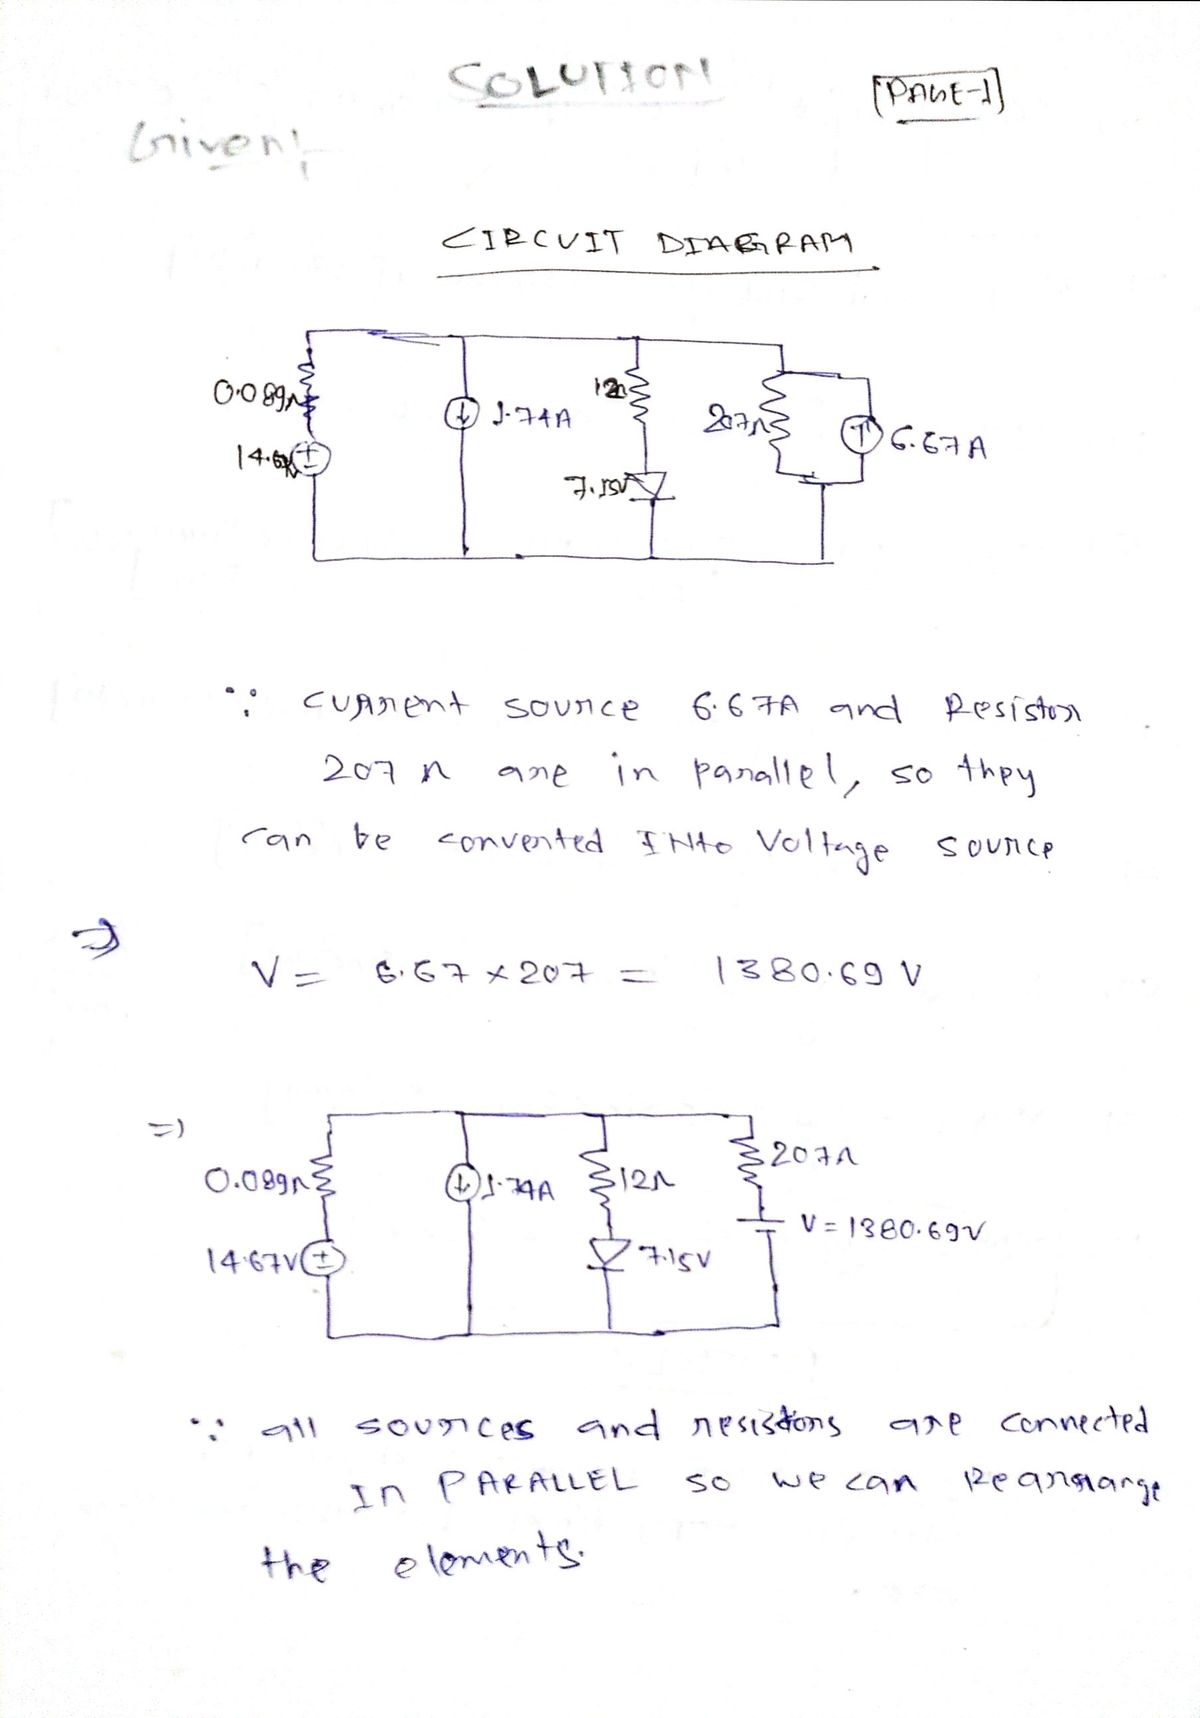 SOLUTION
[PAGE-1]
Given:-
CIRCUIT DIAGRAM
0.089Ω
14.67V
1.74A
12Ω
7.15V
207Ω
6.67A
∵ current source 6.67A and Resistor
207 Ω are in parallel, so they
can be converted INto Voltage source
⇒
V = 6.67 × 207 = 1380.69 V
⇒
0.089Ω
14.67V
1.74A
12Ω
7.15V
207Ω
V = 1380.69V
∵ all sources and resistors are connected
In PARALLEL so we can Rearrange
the elements.